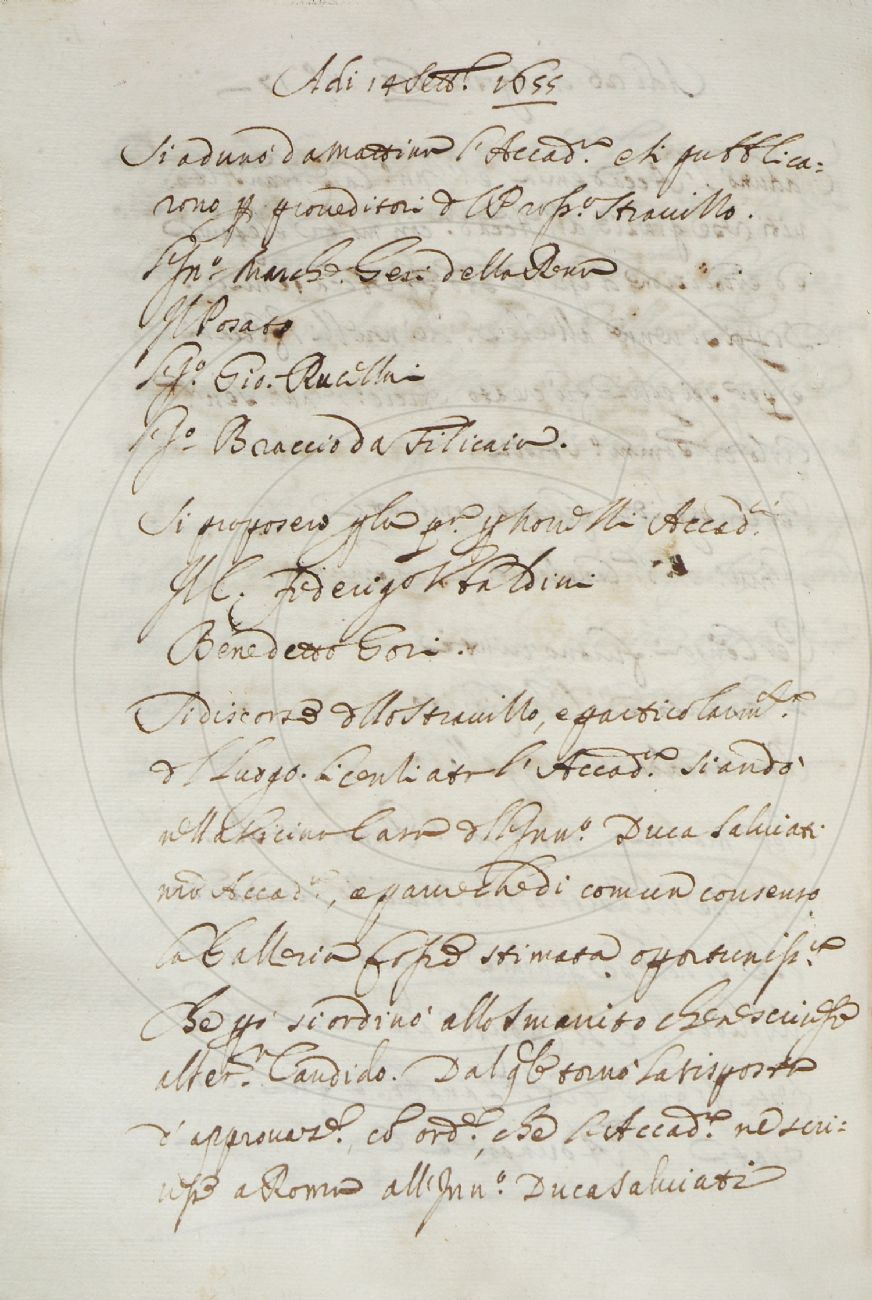 Adi 14 Settb.e 1655
Si adunò da mattina l'Accad.a e si pubblica=
rono pp proveditori dl Pross.o Stravizzo.
S.r Marche. Geri della Rena
Il Posato
Sig.o Gio. Rucellai
Sig.o Braccio da Filicaia.
Si proposero p la p.a p novelli Accad.i
Il C. Federigo Ubaldini
Benedetto Gori.
Si discorse dllo Stravizzo, e particolarm.te
dl luogo. Licenziata l'Accad.a si andò
nella vicina Casa dll'Inn.o Duca Salviati
nro Accad.o, e parve che di comun consenso
la Galleria fosse stimata oportuniss.a
Che pciò si ordinò allo Smarrito che ne scrivesse
al Ser.mo Candido. Dal qle tornò la risposta
d'approvaz.e, co ord.e, che l'Accad.a ne scri=
vesse a Roma all'Inn.o Duca Salviati